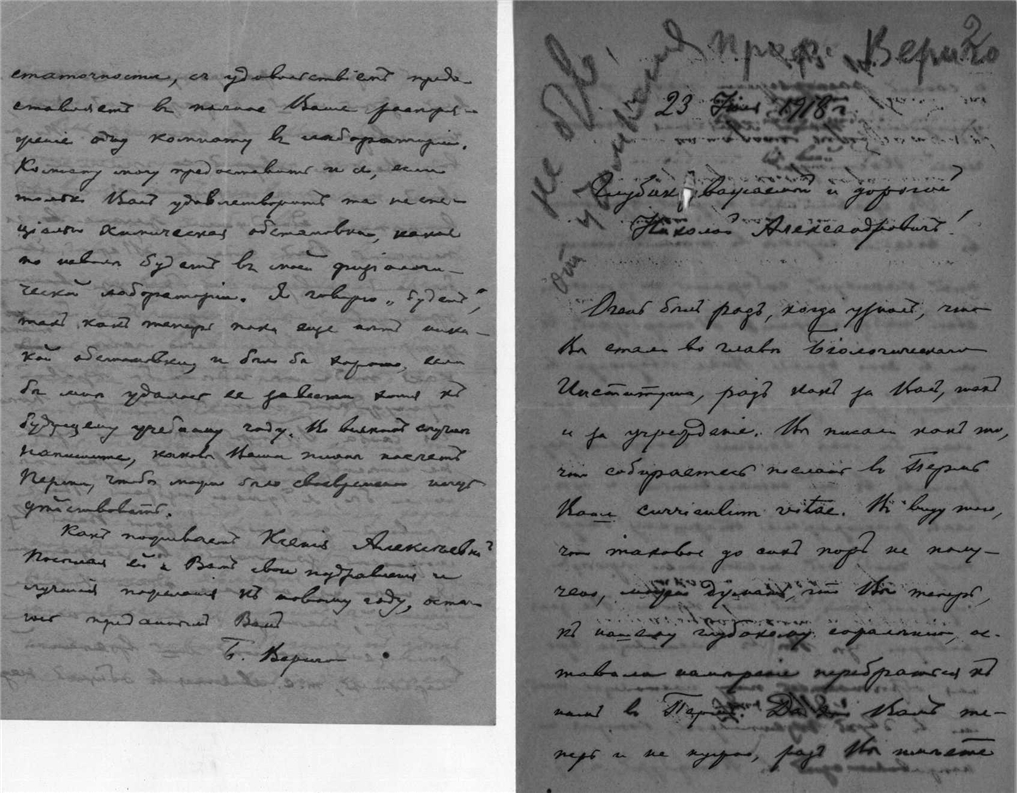 статочности, съ удовольствіемъ предо-
ставляетъ въ полное Ваше распоря-
женіе одну комнату въ лабораторіи.
Комнату могу предоставить и я, если
только Васъ удовлетворитъ та не спе-
ціально химическая обстановка, какая
по неволѣ будетъ въ моей физіологи-
ческой лабораторіи. Я говорю „будетъ“,
такъ какъ теперь пока еще нѣтъ ника-
кой обстановки, и было бы хорошо, если
бы мнѣ удалось ее завести хотя къ
будущему учебному году. Во всякомъ случаѣ
напишите, каковы Ваши планы насчетъ
Перми, чтобы можно было своевременно
дѣйствовать.
Какъ поживаетъ Ксенія Алексѣевна?
Посылая ей и Вамъ свои поздравленія и
лучшія пожеланія къ новому году, оста-
юсь преданный Вамъ
Б. Вериго
2
проф. Вериго
не
отъ
23 1918 г.
Глубокоуважаемый и дорогой
Николай Александровичъ!
Очень былъ радъ, когда узналъ, что
Вы стали во главѣ Біологическаго
Института, радъ какъ за Васъ, такъ
и за учрежденіе. Вы писали какъ-то,
что собираетесь послать въ Пермь
Ваше curriculum vitae. Я вижу,
что таковое до сихъ поръ не полу-
чено, думать, что Вы теперь,
къ нашему глубокому сожалѣнію, ос-
тавили намѣреніе перебраться къ
намъ въ Пермь. Да Вамъ те-
перь и не нужно, разъ Вы имѣете